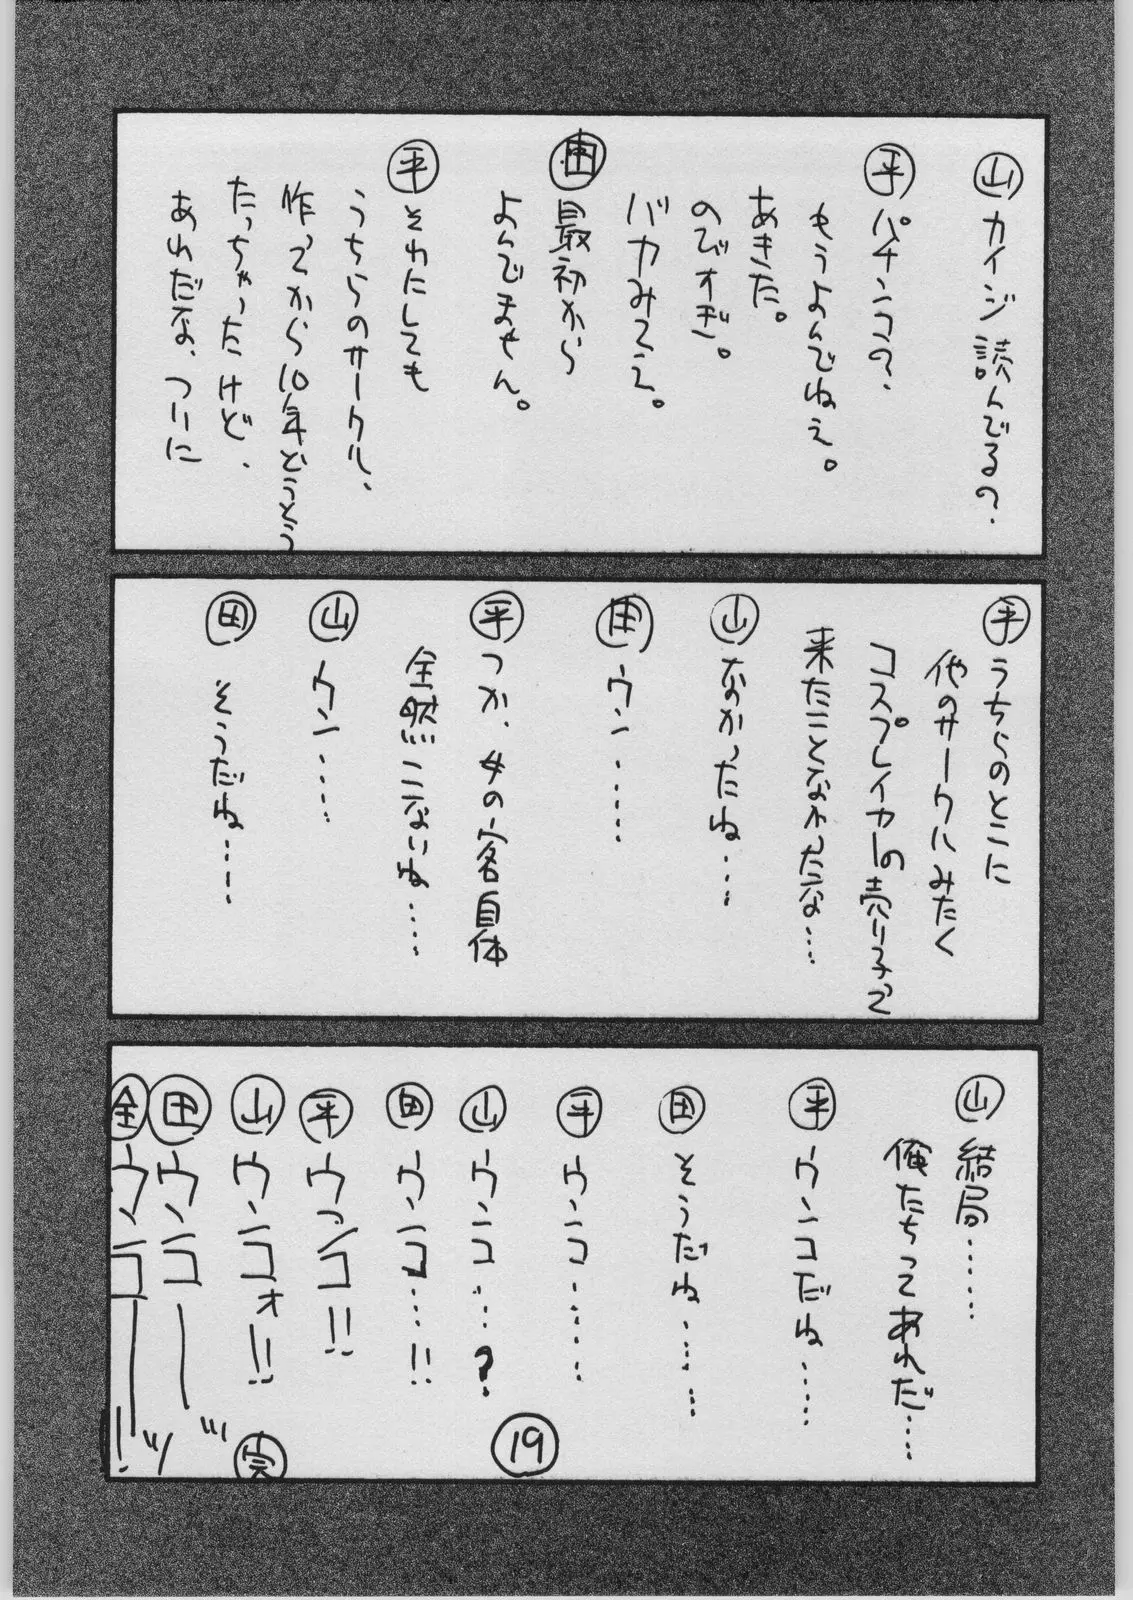 山 カイジ読んでるの?
平 パチンコの?
もうよんでねえ。
あきた。
のびすぎ。
バカみてえ。
田 最初から
よんでません。
平 それにしても
うちらのサークル、
作ってから10年どうとう
たっちゃったけど、
あれだな、ついに
平 うちらのとこに
他のサークルみたく
コスプレイヤーの売り子って
来たことなかったな…
山 なかったね……
田 ウン……
平 つか、女の客自体
全然こないね……
山 ウン……
田 そうだね……
山 結局……
俺たちってあれだ……
平 ウンコだね……
田 そうだね……
平 ウンコ……
山 ウンコ…?
田 ウンコ…!!
平 ウンコ!!
山 ウンコォ!!
田 ウンコーーッ
全 ウンコーーッ!
完
19